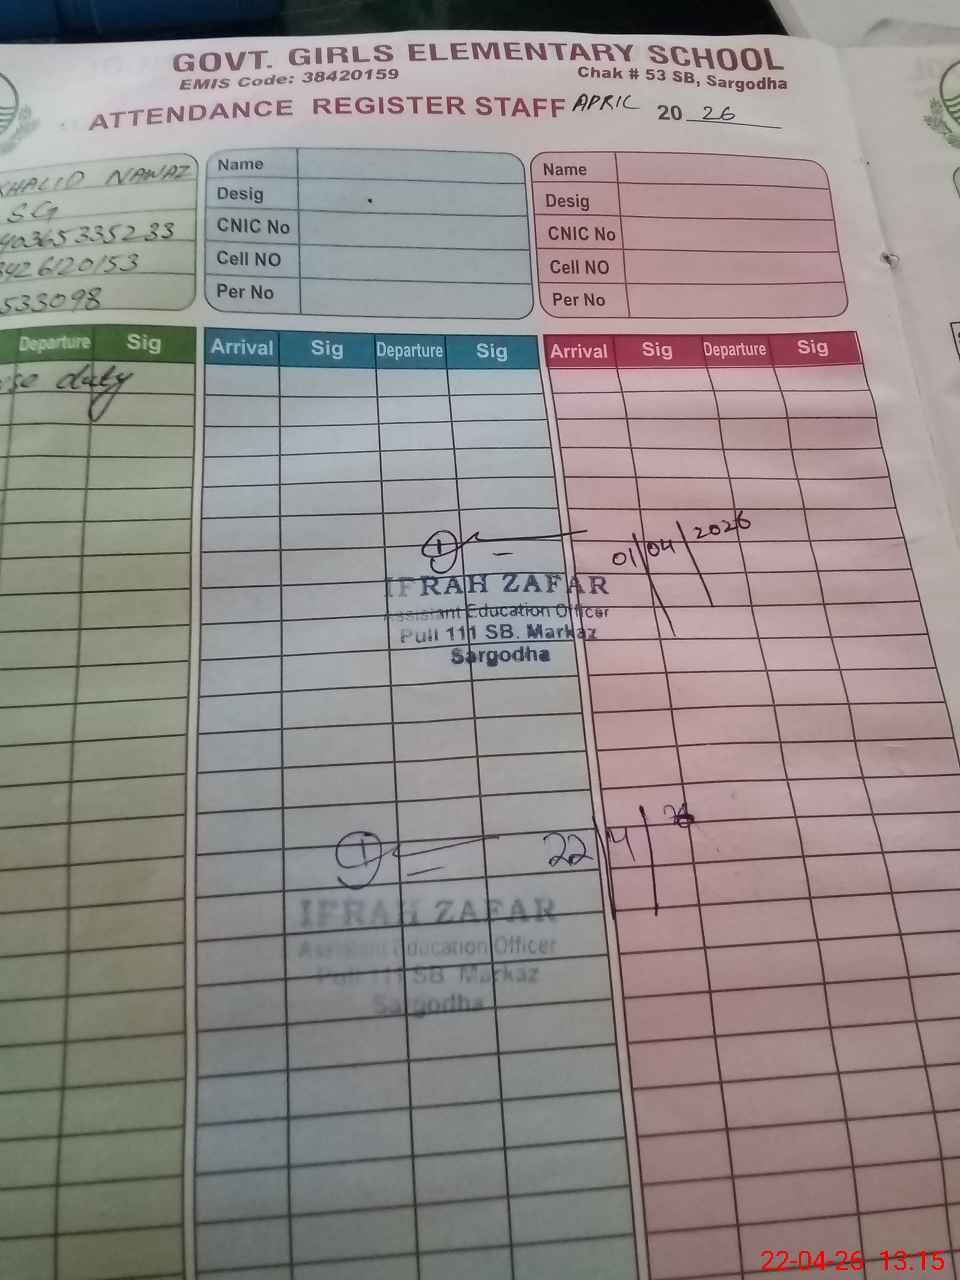 GOVT. GIRLS ELEMENTARY SCHOOL
EMIS Code: 38420159 Chak # 53 SB, Sargodha
ATTENDANCE REGISTER STAFF APRIL 20 26
KHALID NAWAZ
S.G
40365335233
3426120153
533098
Name
Desig
CNIC No
Cell NO
Per No
Name
Desig
CNIC No
Cell NO
Per No
Departure Sig
Arrival Sig Departure Sig
Arrival Sig Departure Sig
duty
01/04/2026
IFRAH ZAFAR
Assistant Education Officer
Pull 111 SB. Markaz
Sargodha
22/4/26
IFRAH ZAFAR
Assistant Education Officer
Pull 111 SB Markaz
Sargodha
22-04-26 13.15